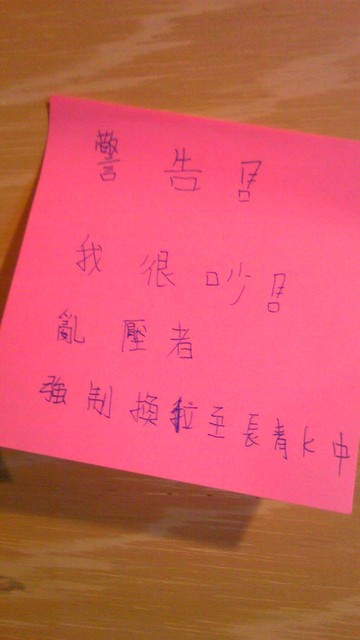 警告!!
我很吵!!
亂壓者
強制換位至長青K中